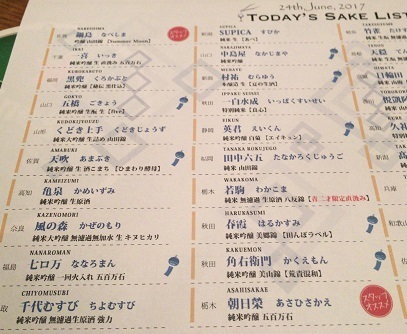 24th, June, 2017
TODAY'S SAKE LIST
NABESHIMA
鍋島 なべしま
吟醸 山田錦【Summer Moon】
スタッフ
オススメ
IKKI
喜 いっき
純米吟醸 生 直汲み 五百万石
KUROKABUTO
福岡 黒兜 くろかぶと
GOKYO
山口 五橋 ごきょう
純米吟醸 生酛 生【five】
KUDOKIJYOUZU
山形 くどき上手 くどきじょうず
純米吟醸 生詰め 山田錦
AMABUKI
佐賀 天吹 あまぶき
純米吟醸 生 酒こまち【ひまわり酵母】
KAMEIZUMI
高知 亀泉 かめいずみ
純米吟醸 生原酒
KAZENOMORI
奈良 風の森 かぜのもり
純米大吟醸 無濾過無加水 生 キヌヒカリ
NANAROMAN
福島 七ロ万 ななろまん
純米吟醸 一回火入れ 五百万石
CHIYOMUSUBI
取 千代むすび ちよむすび
純米吟醸 無濾過 生原酒 強力
SUPICA すぴか
純米吟醸 生【あべ】
NAKAJIMAYA
山口 中島屋 なかじまや
純米吟醸
MURAYU
新潟 村祐 むらゆう
本醸造 生【夏の生酒】
IPPAKU SUISEI
秋田 一白水成 いっぱくすいせい
特別純米【良心】
EIKUN
静岡 英君 えいくん
純米吟醸 白菊【エイキョン】
TANAKA ROKUJUGO
福岡 田中六五 たなかろくじゅうご
純米 山田錦
WAKAKOMA
栃木 若駒 わかこま
純米 無濾過 生原酒 八反錦【青二才限定直汲み】
HARUKASUMI
秋田 春霞 はるかすみ
純米吟醸 美郷錦【田んぼラベル】
KAKUEMON
秋田 角右衛門 かくえもん
純米吟醸 美山錦【荒責混和】
ASAHISAKAE
栃木 朝日榮 あさひさかえ
純米吟醸 五百万石
スタッフ
オススメ
竹雀
日輪田